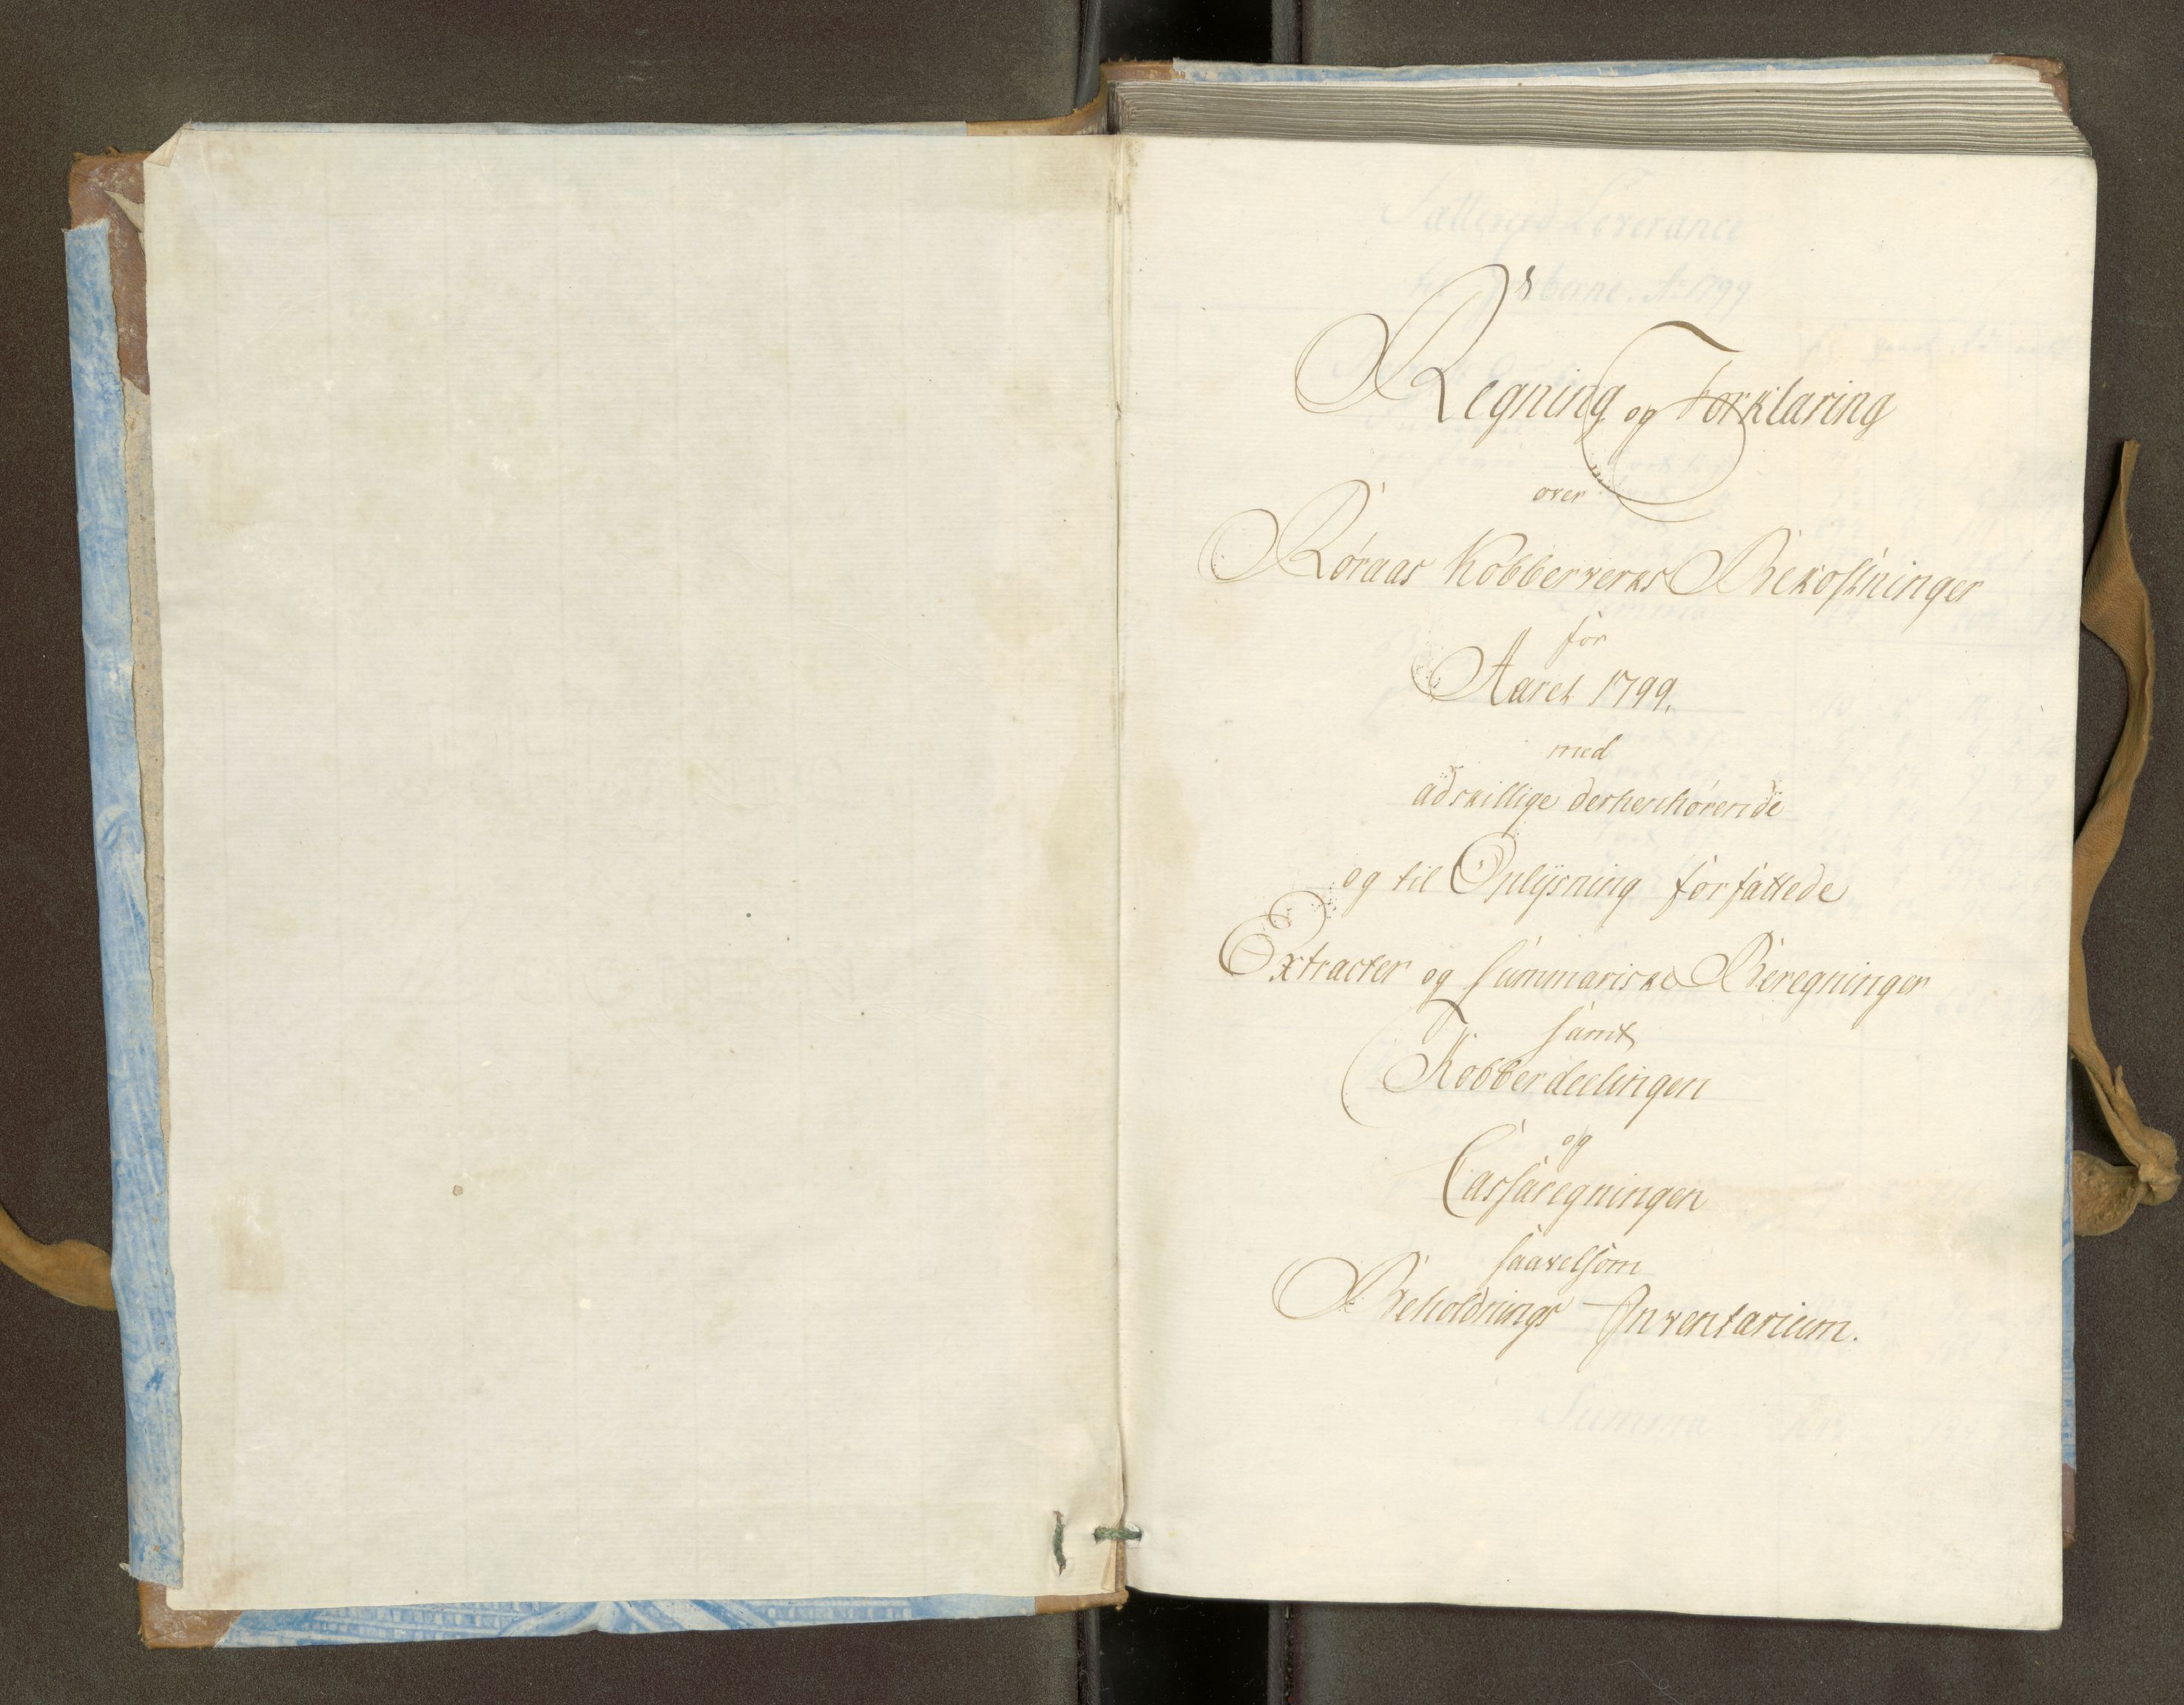 Regning og Forklaring
over
Røraas Kobberverks Bekostninger
for
Aaret 1799.
med
adskillige derhenhørende
og til Oplysning forfattede
Extracter og summariske Beregninger
samt
Kobberdeelingen
og
Cassaregningen
saavelsom
Beholdnings Inventarium.